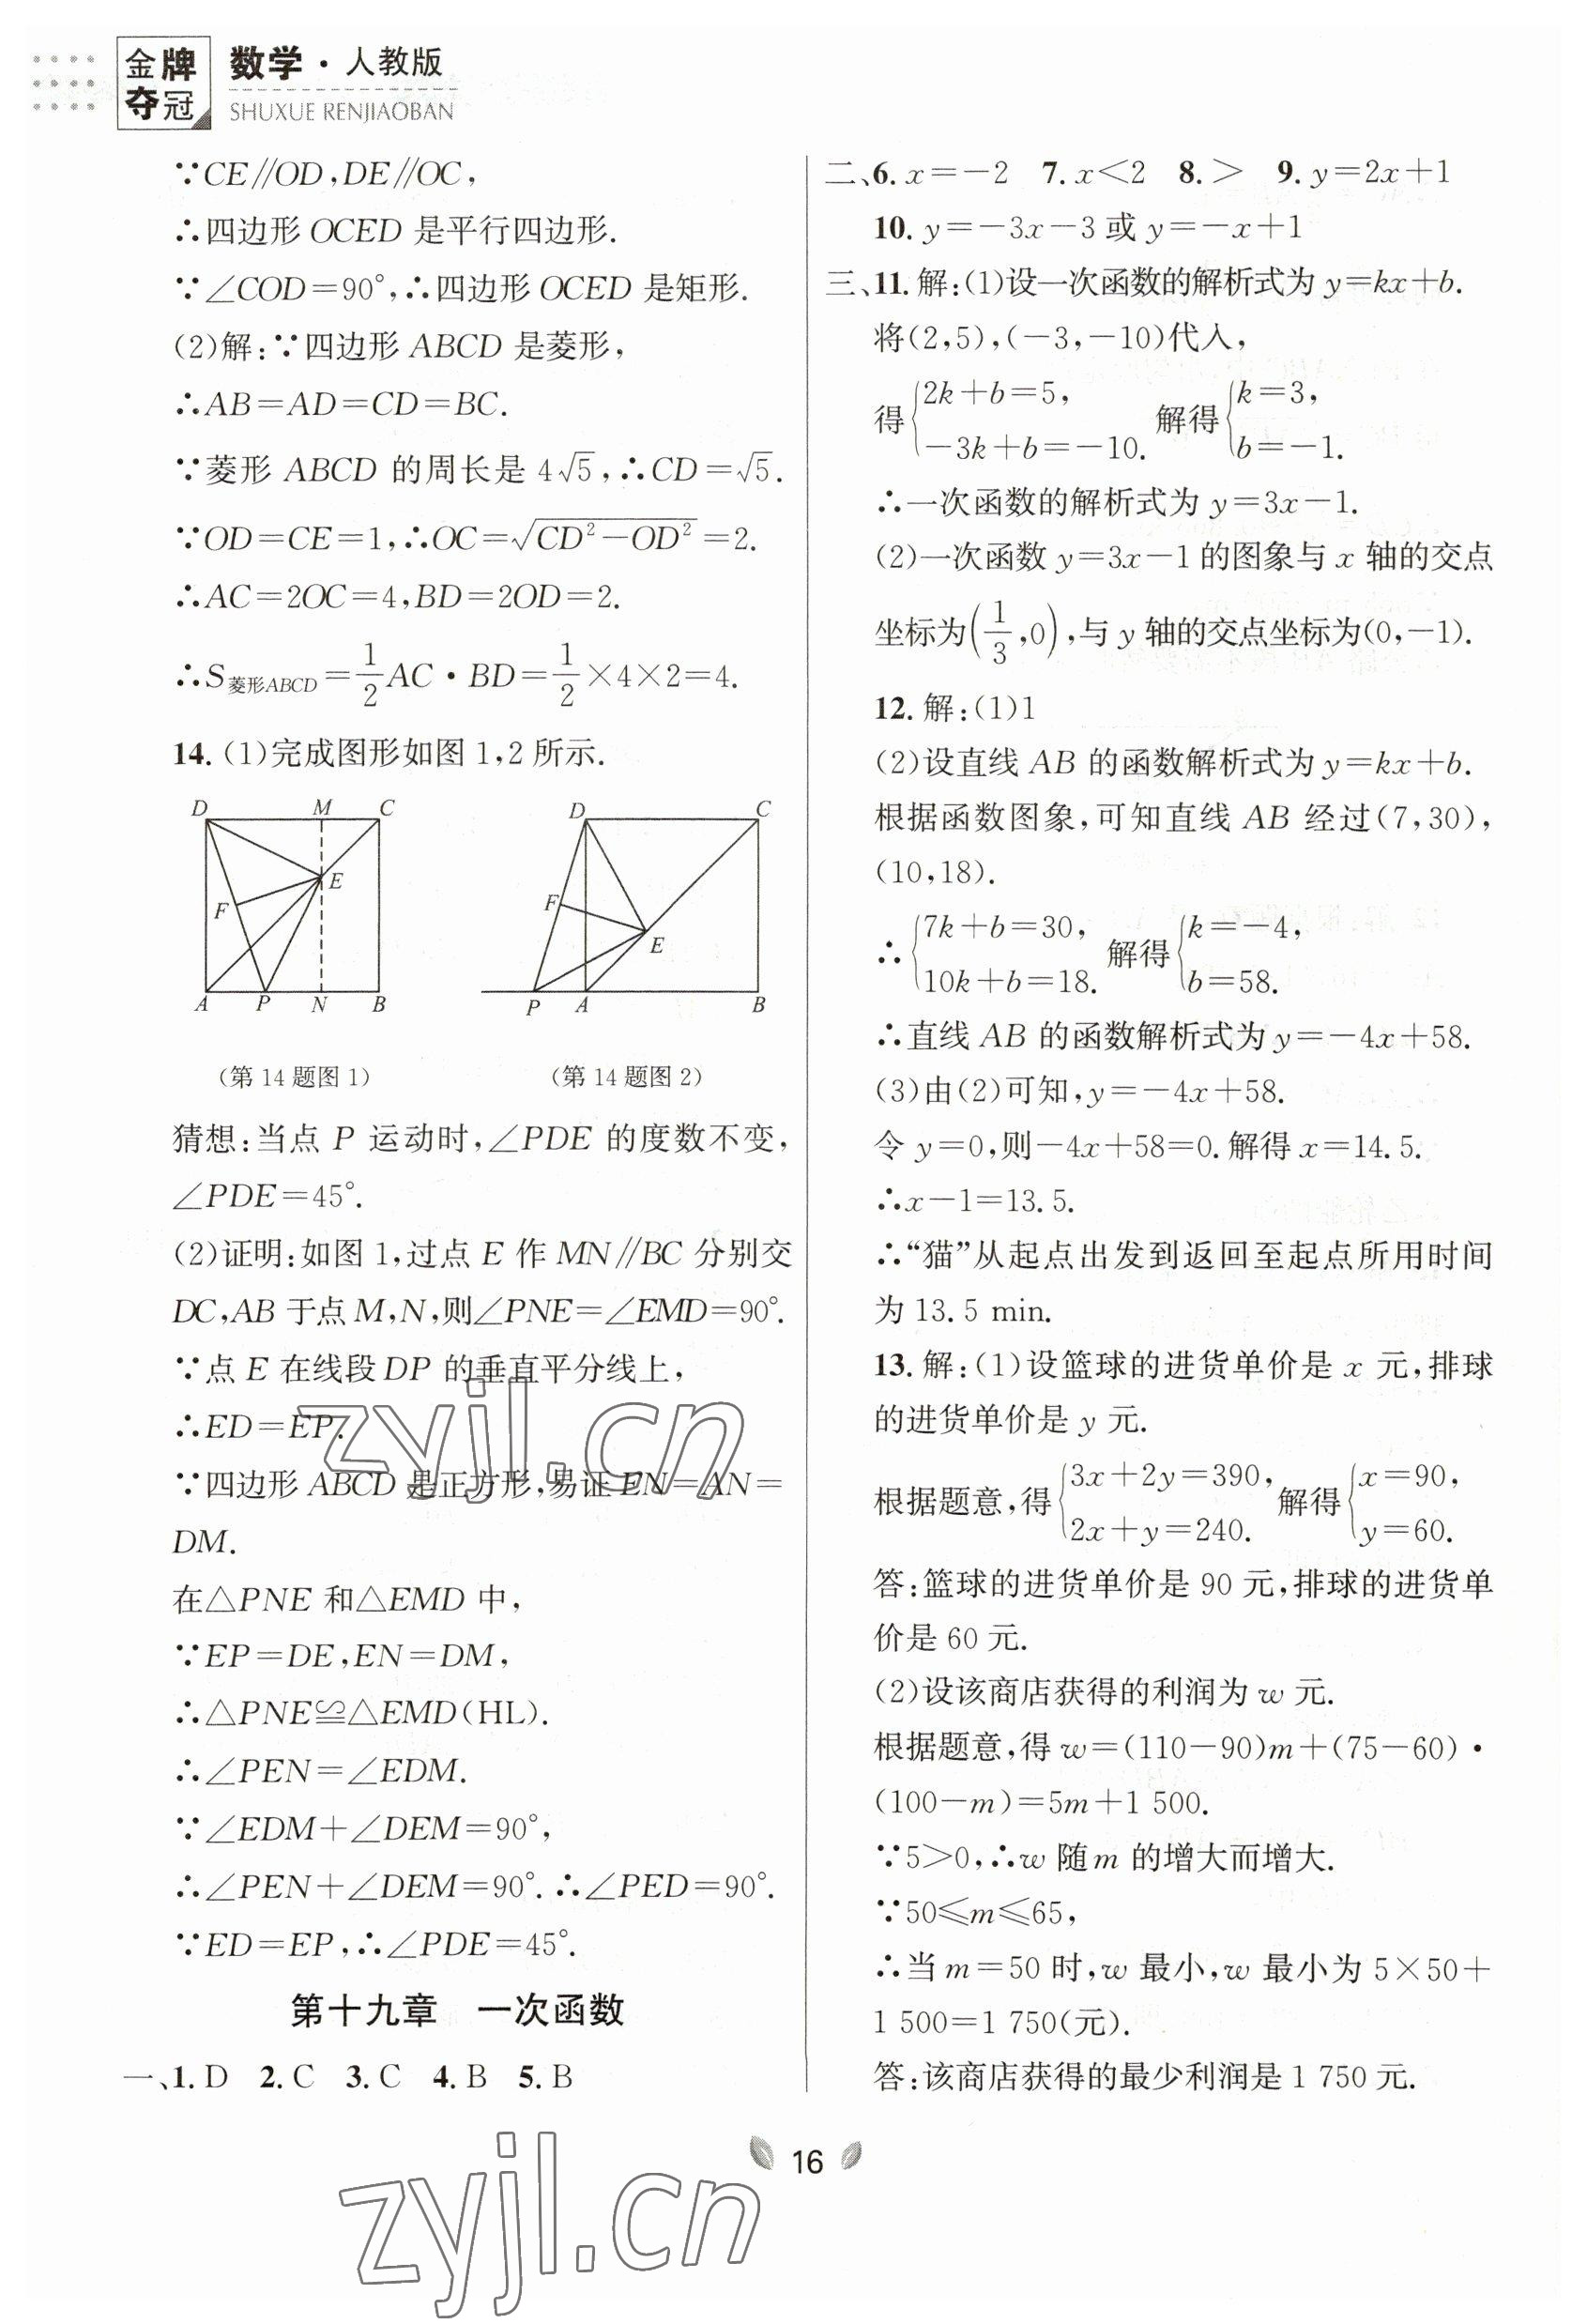 金牌夺冠 数学·人教版
SHUXUE RENJIAOBAN
∵CE∥OD,DE∥OC,
∴四边形OCED是平行四边形.
∵∠COD=90°,∴四边形OCED是矩形.
(2)解:∵四边形ABCD是菱形,
∴AB=AD=CD=BC.
∵菱形ABCD的周长是4√5,∴CD=√5.
∵OD=CE=1,∴OC=√(CD²-OD²)=2.
∴AC=2OC=4,BD=2OD=2.
∴S菱形ABCD=1/2AC·BD=1/2×4×2=4.
14.(1)完成图形如图1,2所示.
D M C
E
F
A P N B
D C
F
E
P A B
(第14题图1) (第14题图2)
猜想:当点P运动时,∠PDE的度数不变,
∠PDE=45°.
(2)证明:如图1,过点E作MN∥BC分别交
DC,AB于点M,N,则∠PNE=∠EMD=90°.
∵点E在线段DP的垂直平分线上,
∴ED=EP.
∵四边形ABCD是正方形,易证EN=AN=
DM.
在△PNE和△EMD中,
∵EP=DE,EN=DM,
∴△PNE≌△EMD(HL).
∴∠PEN=∠EDM.
∵∠EDM+∠DEM=90°,
∴∠PEN+∠DEM=90°.∴∠PED=90°.
∵ED=EP,∴∠PDE=45°.
第十九章 一次函数
一、1.D 2.C 3.C 4.B 5.B
二、6.x=-2 7.x<2 8.> 9.y=2x+1
10.y=-3x-3或y=-x+1
三、11.解:(1)设一次函数的解析式为y=kx+b.
将(2,5),(-3,-10)代入,
得{2k+b=5, -3k+b=-10. 解得{k=3, b=-1.
∴一次函数的解析式为y=3x-1.
(2)一次函数y=3x-1的图象与x轴的交点
坐标为(1/3,0),与y轴的交点坐标为(0,-1).
12.解:(1)1
(2)设直线AB的函数解析式为y=kx+b.
根据函数图象,可知直线AB经过(7,30),
(10,18).
∴{7k+b=30, 10k+b=18. 解得{k=-4, b=58.
∴直线AB的函数解析式为y=-4x+58.
(3)由(2)可知,y=-4x+58.
令y=0,则-4x+58=0.解得x=14.5.
∴x-1=13.5.
∴“猫”从起点出发到返回至起点所用时间
为13.5 min.
13.解:(1)设篮球的进货单价是x元,排球
的进货单价是y元.
根据题意,得{3x+2y=390, 2x+y=240. 解得{x=90, y=60.
答:篮球的进货单价是90元,排球的进货单
价是60元.
(2)设该商店获得的利润为w元.
根据题意,得w=(110-90)m+(75-60)·
(100-m)=5m+1 500.
∵5>0,∴w随m的增大而增大.
∵50≤m≤65,
∴当m=50时,w最小,w最小为5×50+
1 500=1 750(元).
答:该商店获得的最少利润是1 750元.
16
zyjl.cn
zyjl.cn